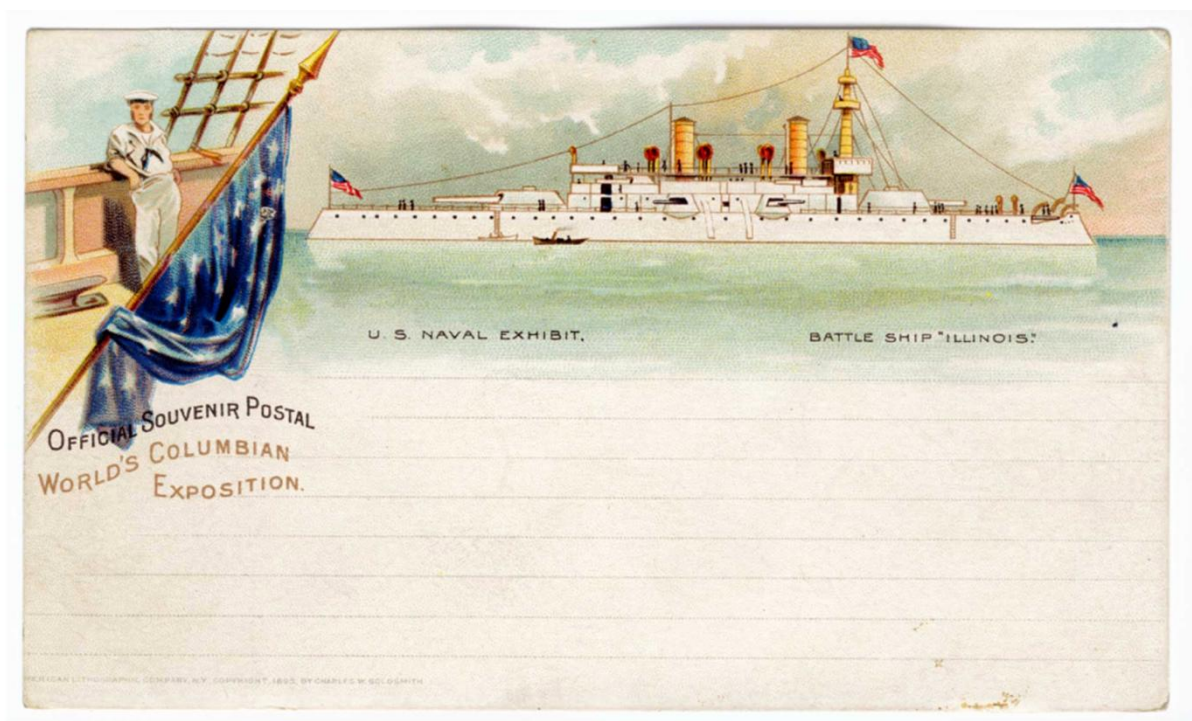 U. S. NAVAL EXHIBIT.
BATTLE SHIP "ILLINOIS."
OFFICIAL SOUVENIR POSTAL
WORLD'S COLUMBIAN
EXPOSITION.
AMERICAN LITHOGRAPHIC COMPANY, N.Y. COPYRIGHT, 1893, BY CHARLES W. GOLDSMITH